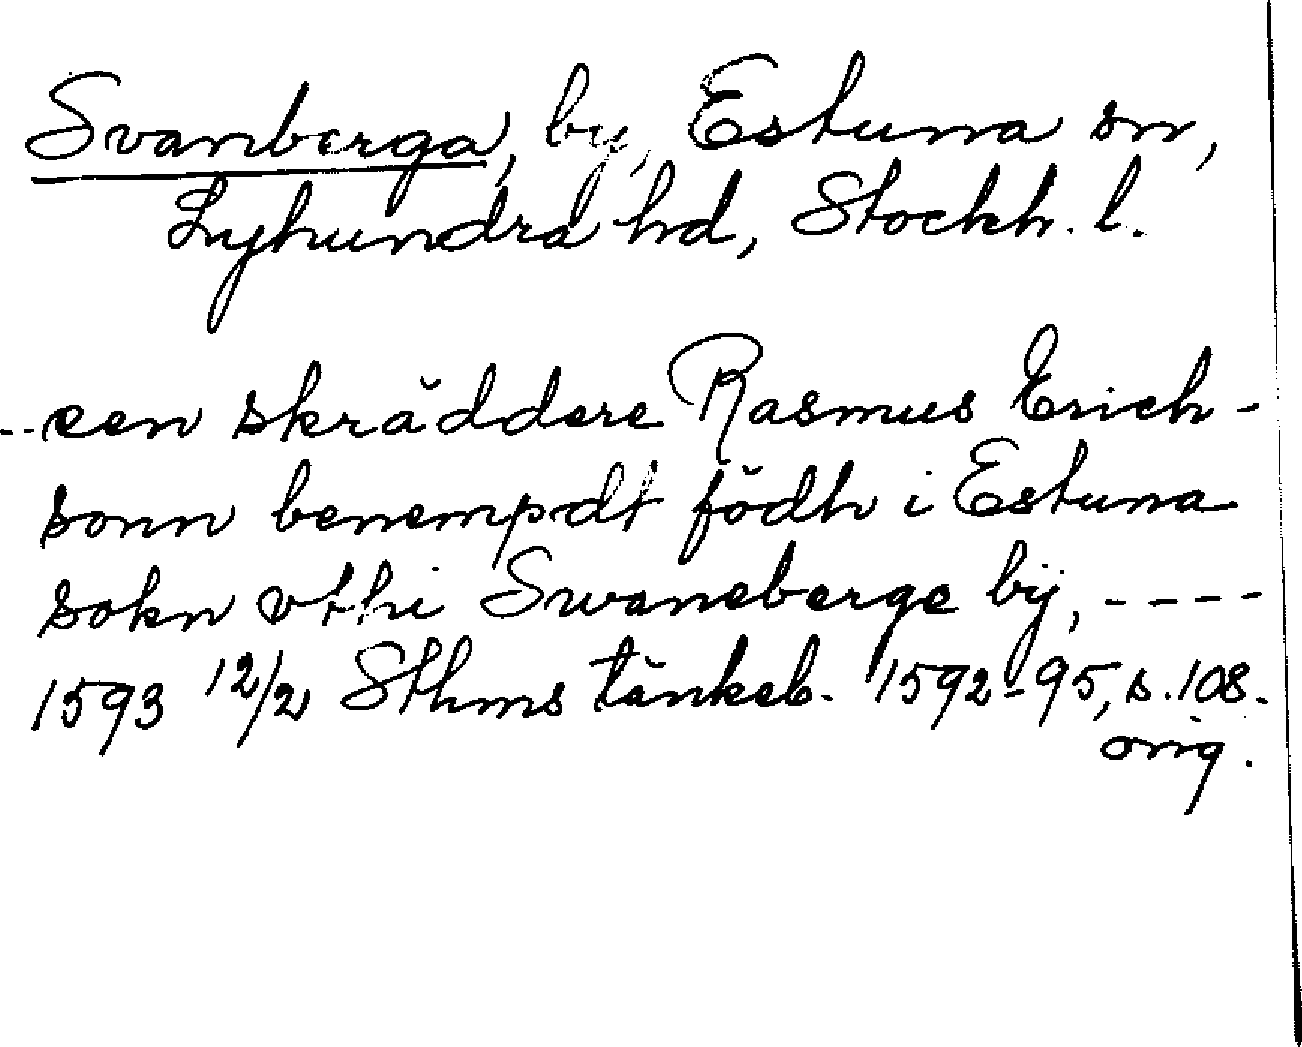 Svanberga, by, Estuna sn,
Lyhundra hd, Stockh. l.
-- een skräddere Rasmus Erich-
sonn benempdt födh i Estuna
sokn vthi Swaneberge bÿ, ----
1593 12/2 Sthms tänkeb. 1592-95, s. 108.
orig.